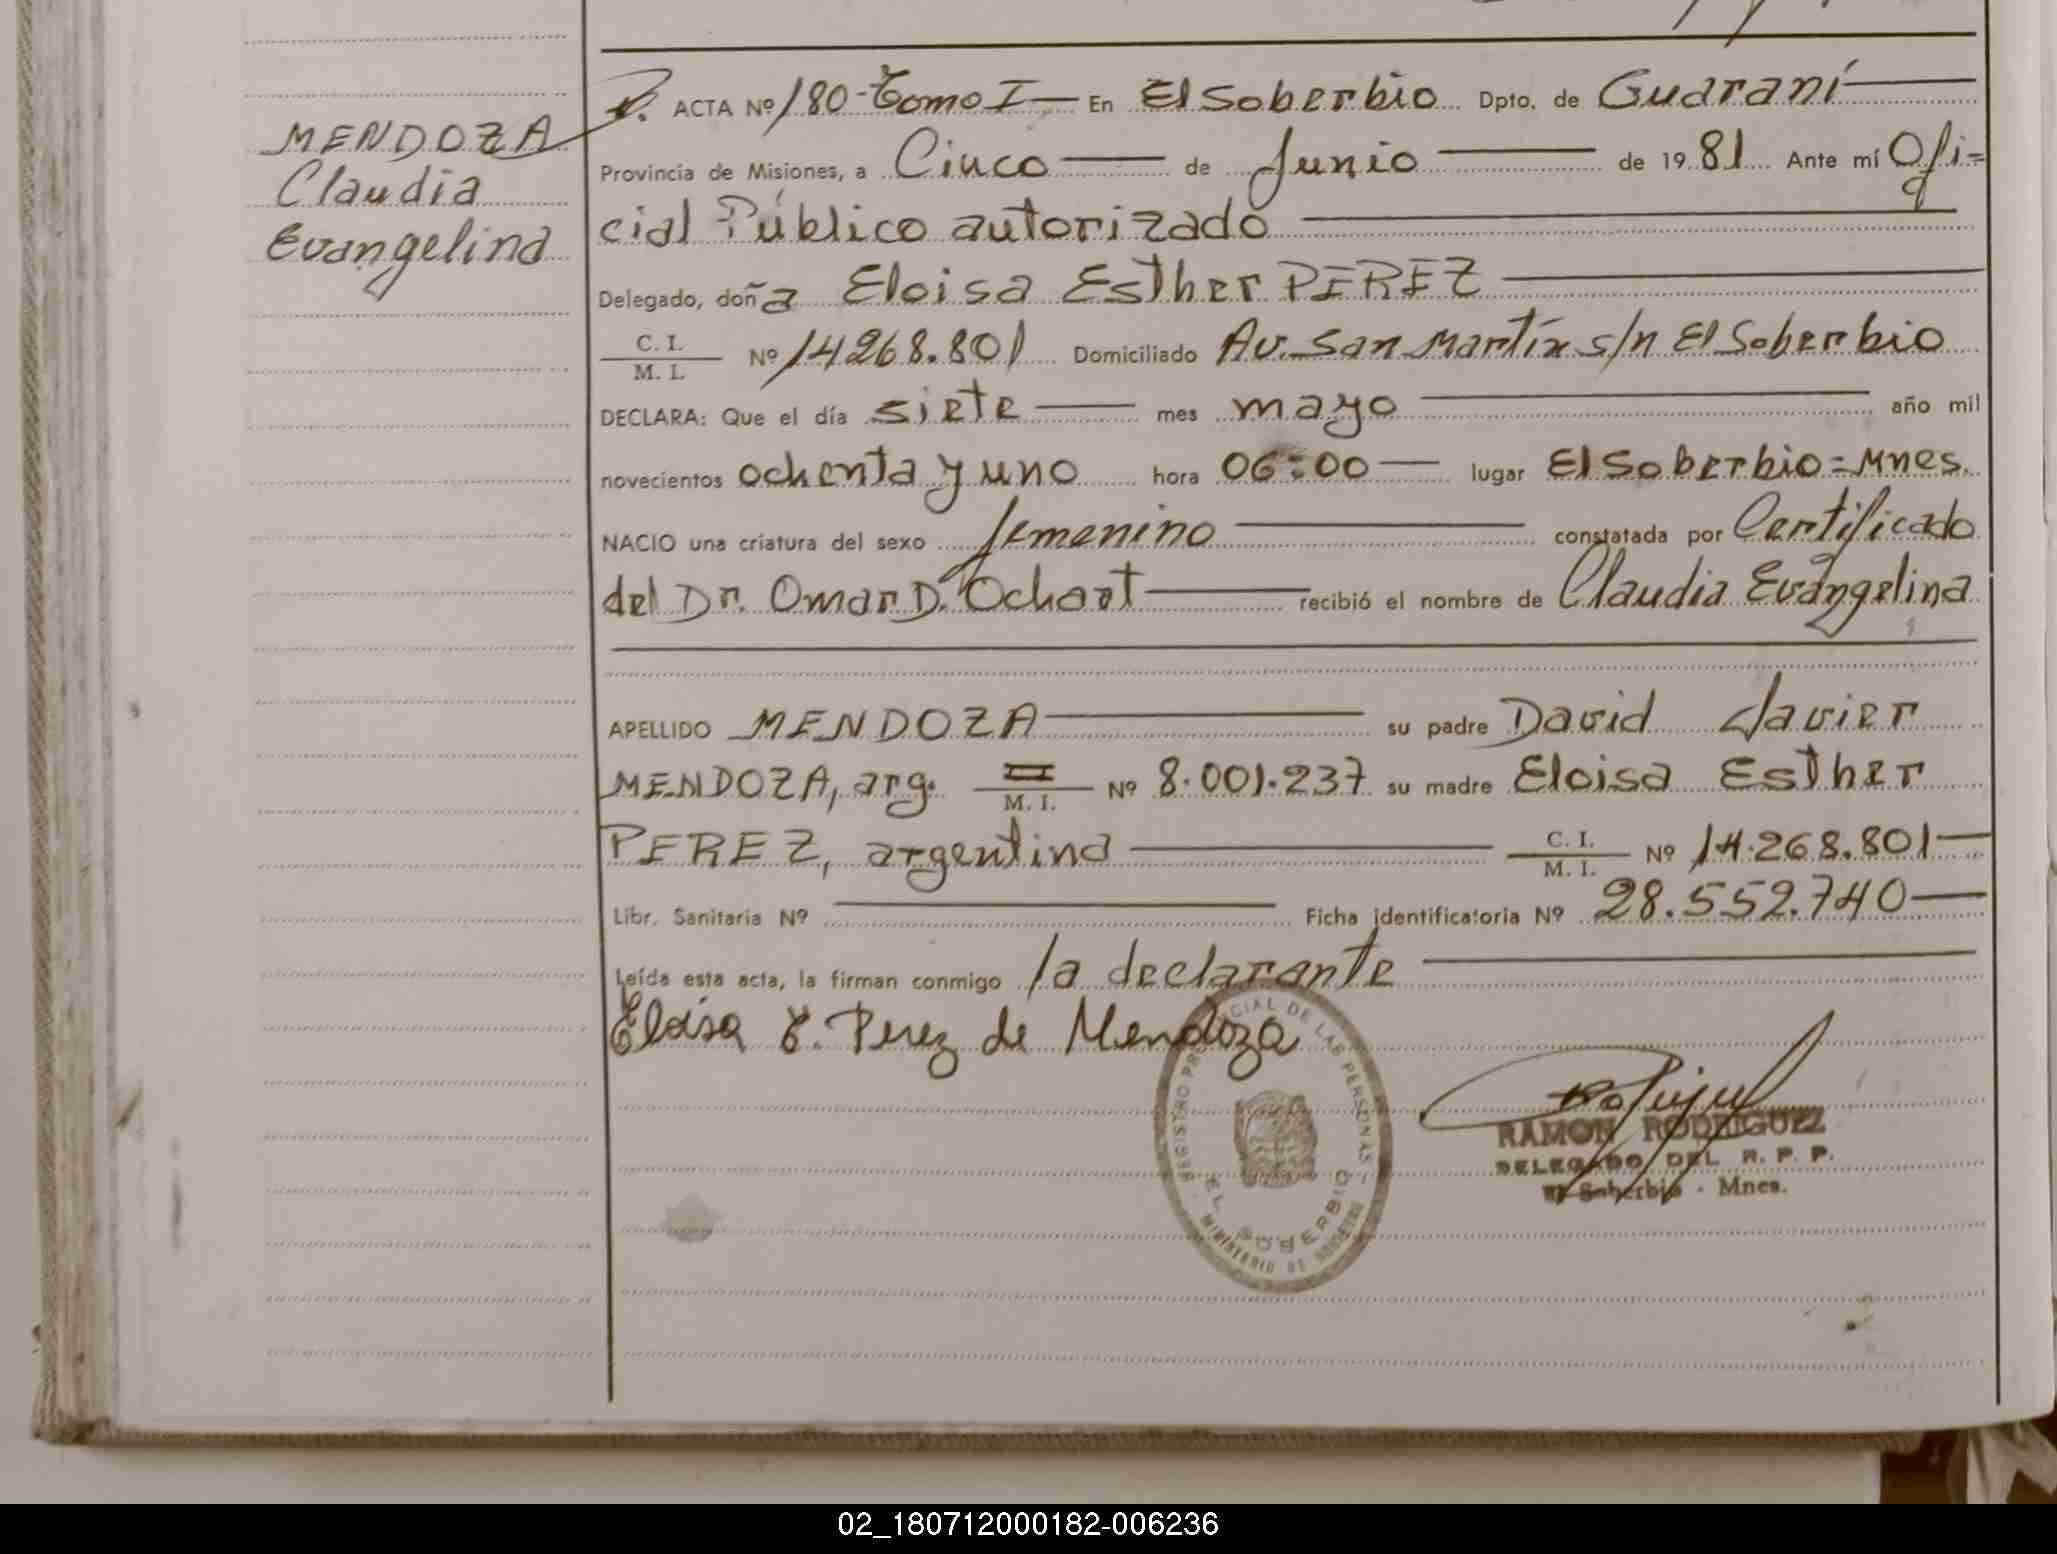 MENDOZA
Claudia
Evangelina
ACTA Nº 180-Tomo I En El Soberbio Dpto. de Guaraní
Provincia de Misiones, a Cinco de Junio de 1981 Ante mí Ofi=
cial Público autorizado
Delegado, doña Eloisa Esther PEREZ
C. I.
M. I. Nº 14268.801 Domiciliado Av. San Martín s/n El Soberbio
DECLARA: Que el día siete mes mayo año mil
novecientos ochenta y uno hora 06:00 lugar El Soberbio=Mnes.
NACIO una criatura del sexo femenino constatada por Certificado
del Dr. Omar D. Ochoat recibió el nombre de Claudia Evangelina
APELLIDO MENDOZA su padre David Javier
MENDOZA, arg. M. I. Nº 8.001.237 su madre Eloisa Esther
PEREZ, argentina C. I. M. I. Nº 14.268.801
Libr. Sanitaria Nº Ficha identificatoria Nº 28.552.740
Leída esta acta, la firman conmigo la declarante
Eloisa E. Perez de Mendoza
REGISTRO PROVINCIAL DE LAS PERSONAS
EL SOBERBIO
MINISTERIO DE GOBIERNO
RAMON RODRIGUEZ
DELEGADO DEL R. P. P.
El Soberbio - Mnes.
02_180712000182-006236